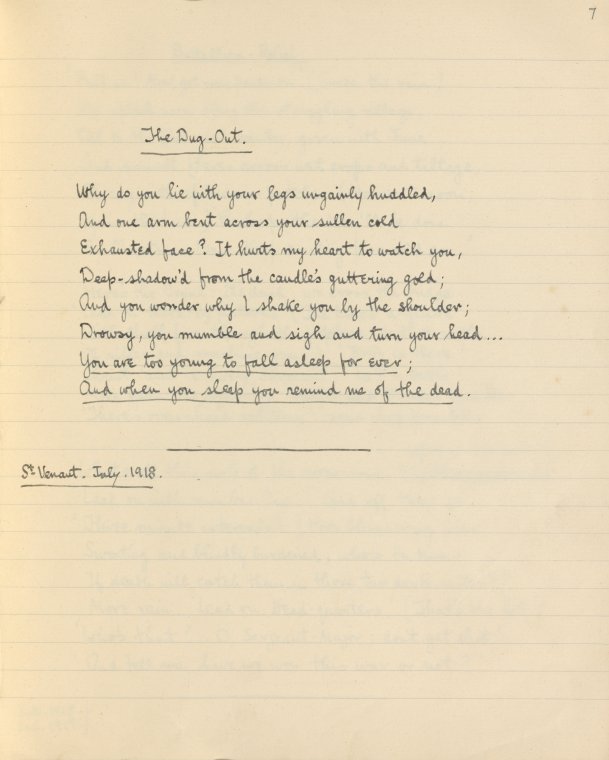 7
The Dug-Out.
Why do you lie with your legs ungainly huddled,
And one arm bent across your sullen cold
Exhausted face? It hurts my heart to watch you,
Deep-shadow'd from the candle's guttering gold;
And you wonder why I shake you by the shoulder;
Drowsy, you mumble and sigh and turn your head...
You are too young to fall asleep for ever;
And when you sleep you remind me of the dead.
St Venant. July. 1918.